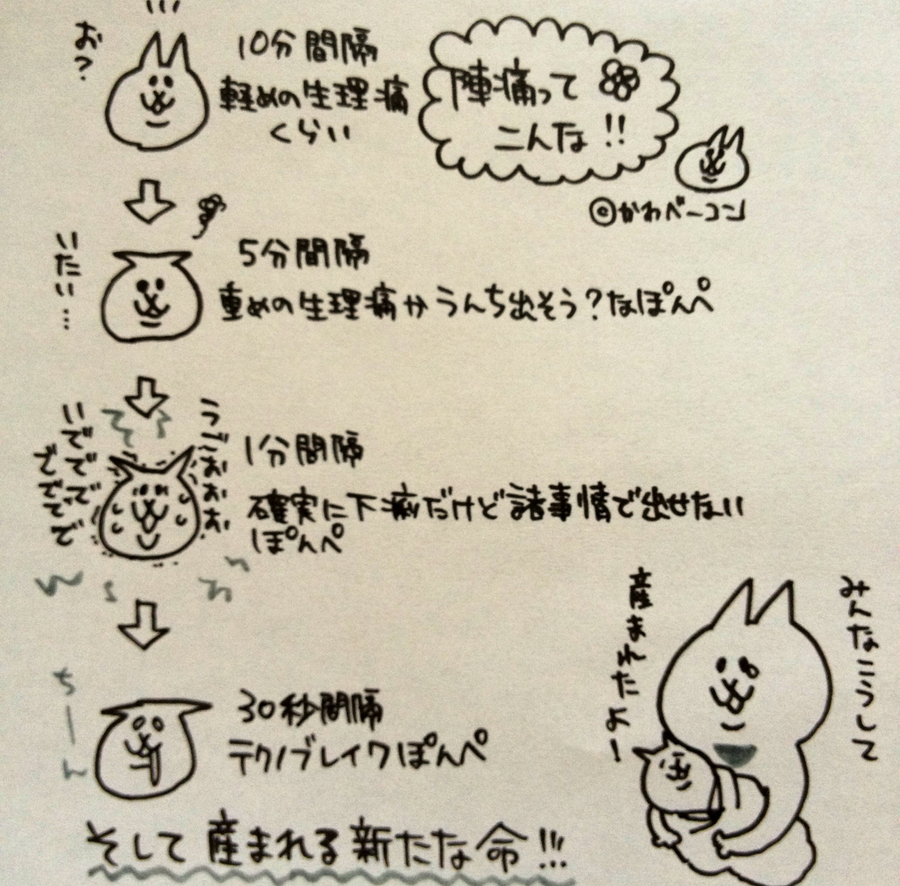 陣痛って
こんな!!
©かわベーコン
お?
10分間隔
軽めの生理痛
くらい
いたい…
5分間隔
重めの生理痛かうんち出そう?なぽんぺ
いでででで
でででで
うごおおお
1分間隔
確実に下痢だけど諸事情で出せない
ぽんぺ
ちーん
30秒間隔
テクノブレイクぽんぺ
そして産まれる新たな命!!!
みんなこうして
産まれたよー